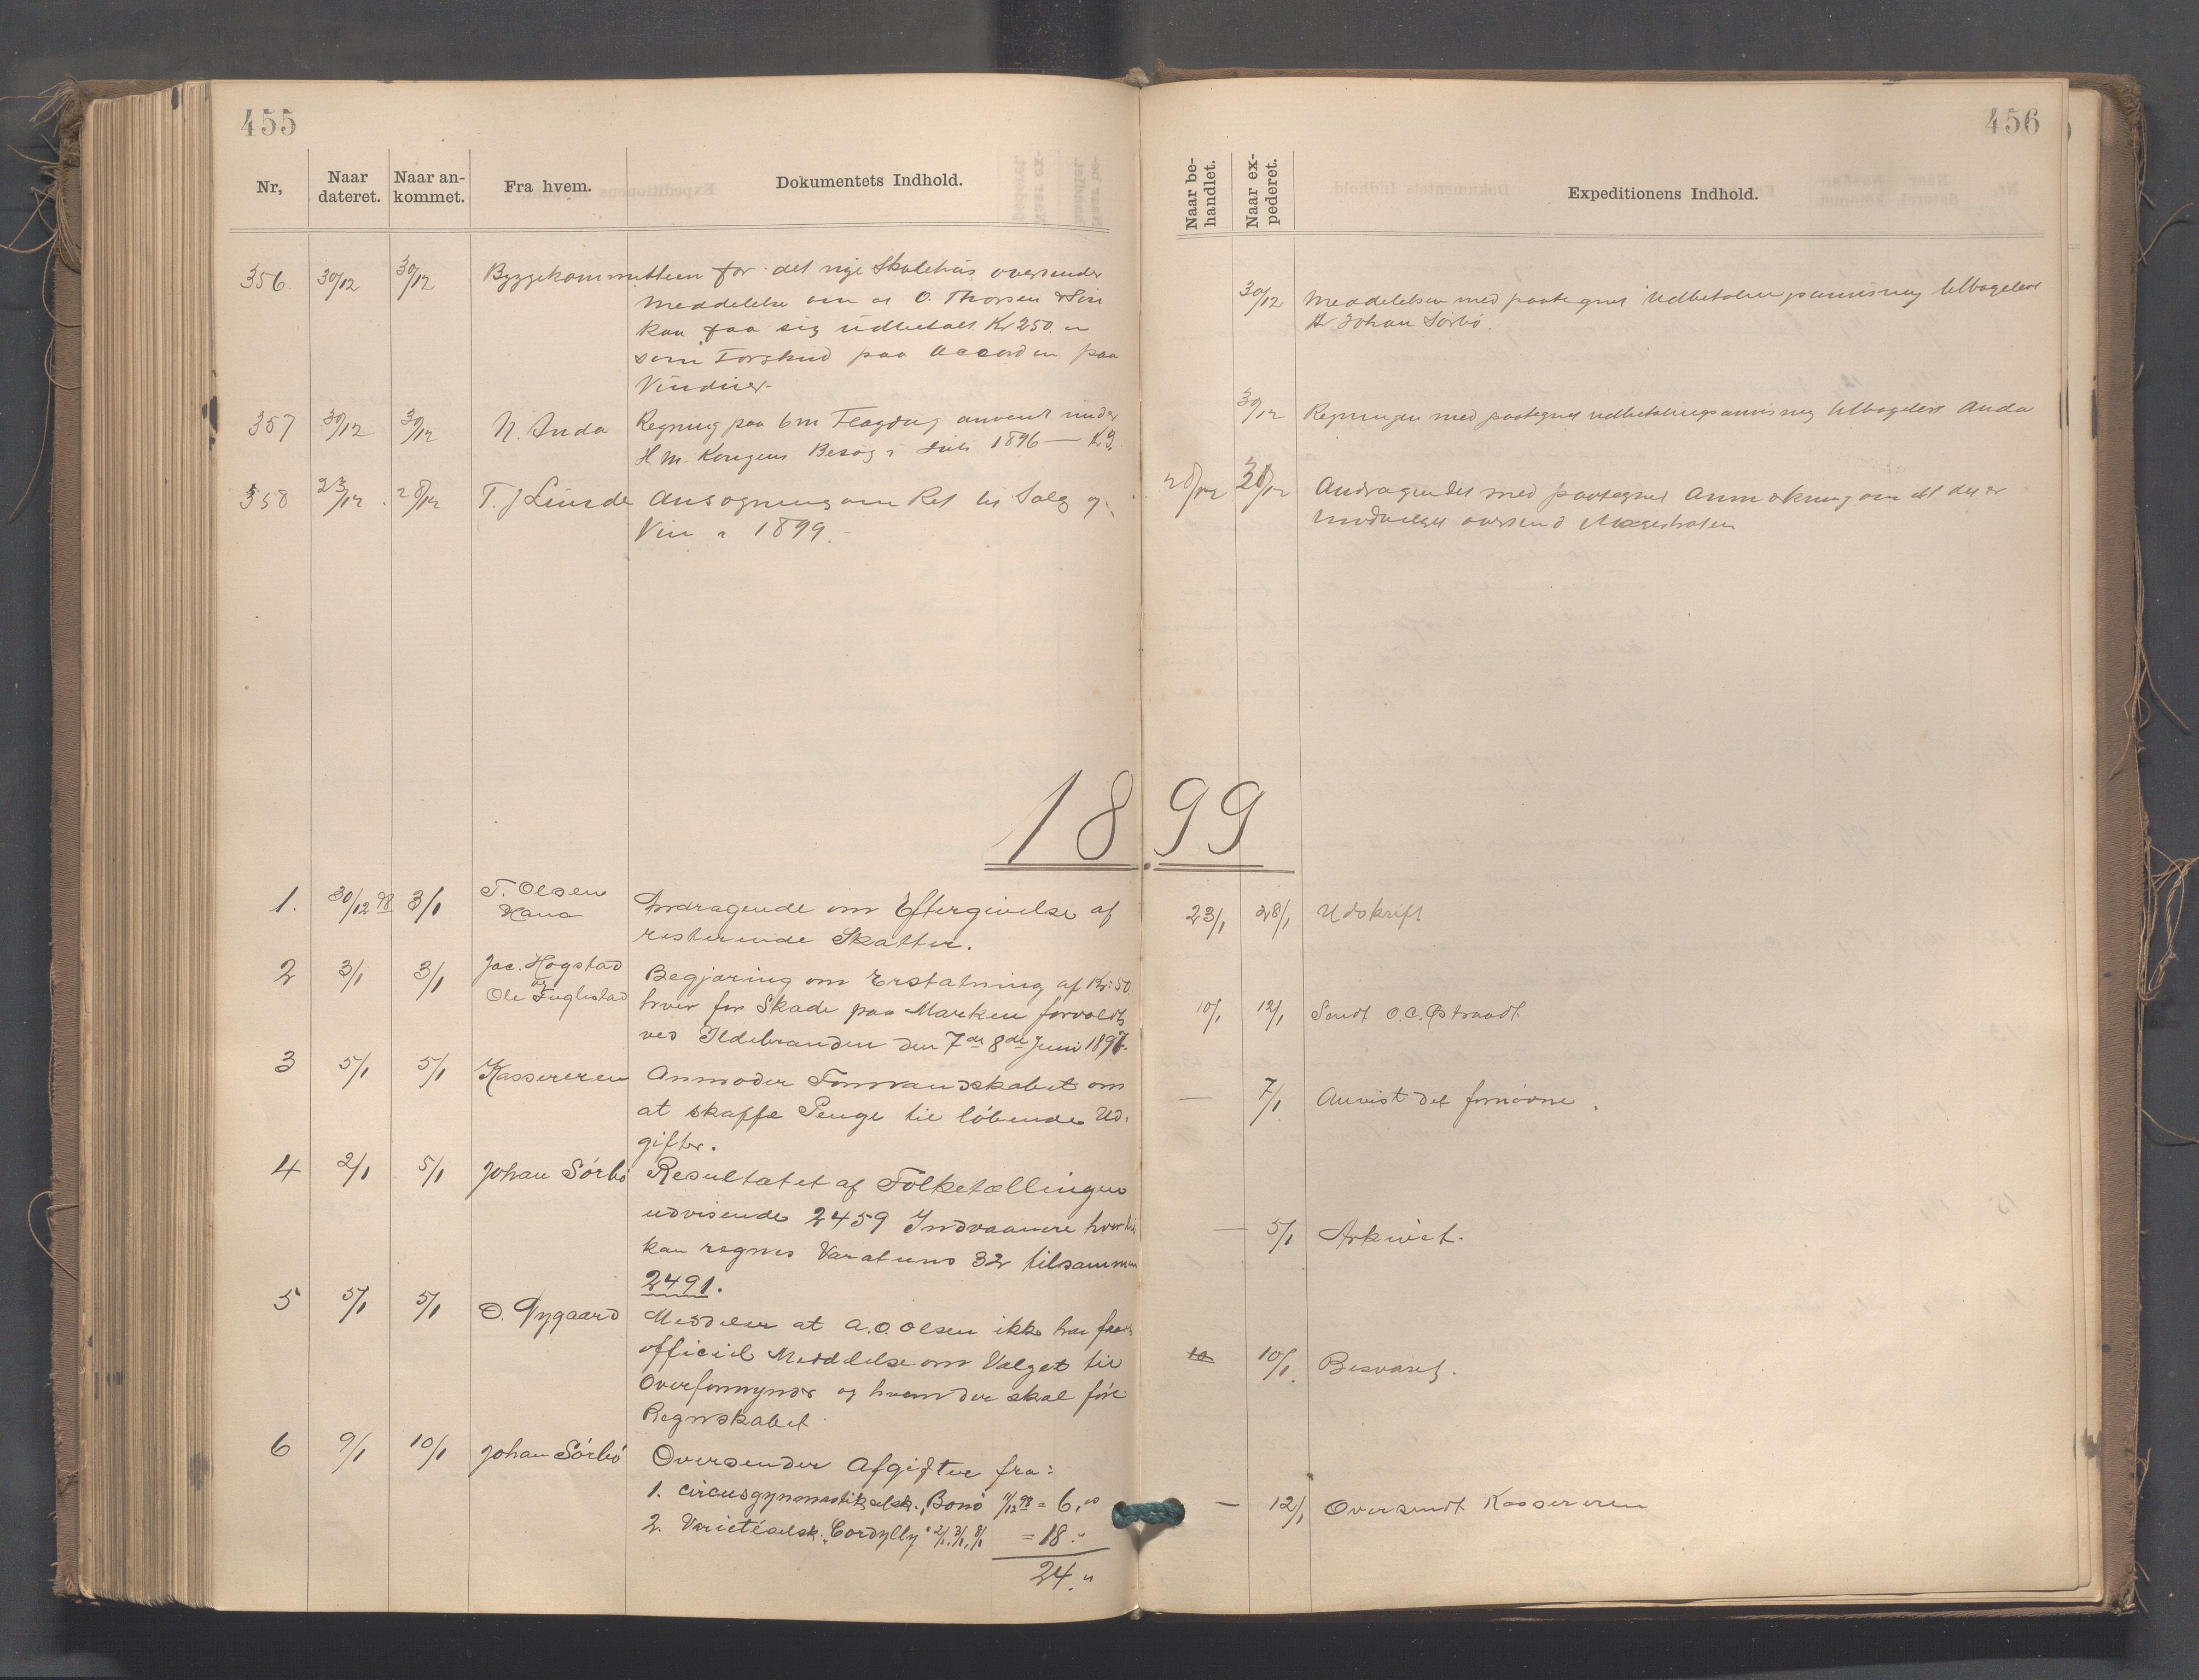 455
456
Nr,
Naar dateret.
Naar ankommet.
Fra hvem.
Dokumentets Indhold.
Naar behandlet.
Naar expederet.
Expeditionens Indhold.
356 30/12 30/12 Byggekommitteen for det nye Skolehus oversender
Meddelelse om at O. Thorsen & Søn
kan faa sig udbetalt Kr 250.
som Forskud paa Accorden paa
Vinduer
30/12 Meddelelsen med paategnet Udbetalingsanvisning tilbagelevt
Hr Johan Sørbø.
357 30/12 30/12 N. Anda Regning paa 6m Flagdug anvendt under
H M. Kongens Besøg i Juli 1896 — Kr 9.
30/12 Regningen med paategnet udbetalingsanvisning tilbagelevt Anda
358 23/12 28/12 T. J Linde Ansøgning om Ret til Salg af
Vin i 1899.
28/12 30/12 Andragendet med paategnet Anmerkning om at det er
indvilget oversend Magistraten
1899
1. 30/12 98 3/1 T. Olsen
Hana
Andragende om Eftergivelse af
resterende Skatter.
23/1 28/1 Udskrift
2 3/1 3/1 Jac. Høgstad
og
Ole Fuglestad
Begjæring om Erstatning af Kr: 50
hver for Skade paa Marken forvoldt
ved Ildebranden den 7de 8de Juni 1897.
10/1 12/1 Sendt O. C. Østraadt
3 5/1 5/1 Kassereren Anmoder Formandskabet om
at skaffe Penge til løbende Ud-
gifter.
— 7/1 Anvist det fornødne.
4 2/1 5/1 Johan Sørbø Resultatet af Folketællingen
udvisende 2459 Indvaanere hvortil
kan regnes Varatuns 32 tilsammen
2491.
— 5/1 Arkivet.
5 5/1 5/1 O. Nygaard Meddeler at A. O. Olsen ikke har faaet
officiel Meddelelse om Valget til
Overformynder og hvem der skal føre
Regnskabet
10 10/1. Besvaret.
6 9/1 10/1 Johan Sørbø Oversender Afgifter fra:
1. Circusgymnastikselsk. Bono 11/12 98 = 6,00
2. Varietéselsk. Cordylly 2/1, 3/1, 8/1 = 18 "
24. "
— 12/1 Oversendt Kassereren